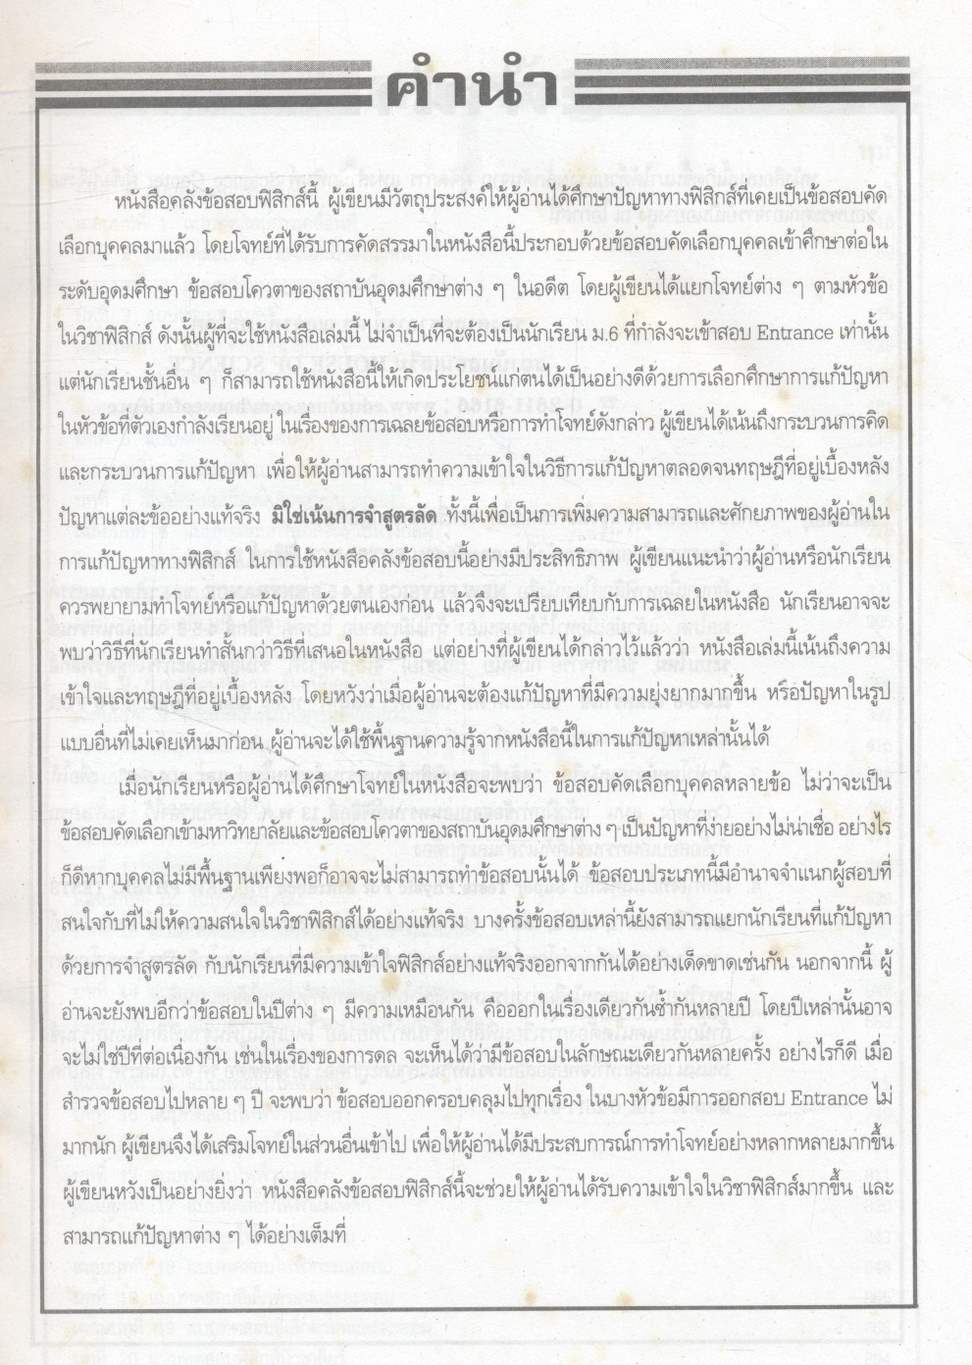 คำนำ
หนังสือคลังข้อสอบฟิสิกส์นี้ ผู้เขียนมีวัตถุประสงค์ให้ผู้อ่านได้ศึกษาปัญหาทางฟิสิกส์ที่เคยเป็นข้อสอบคัด
เลือกบุคคลมาแล้ว โดยโจทย์ที่ได้รับการคัดสรรมาในหนังสือนี้ประกอบด้วยข้อสอบคัดเลือกบุคคลเข้าศึกษาต่อใน
ระดับอุดมศึกษา ข้อสอบโควตาของสถาบันอุดมศึกษาต่าง ๆ ในอดีต โดยผู้เขียนได้แยกโจทย์ต่าง ๆ ตามหัวข้อ
ในวิชาฟิสิกส์ ดังนั้นผู้ที่จะใช้หนังสือเล่มนี้ ไม่จำเป็นที่จะต้องเป็นนักเรียน ม.6 ที่กำลังจะเข้าสอบ Entrance เท่านั้น
แต่นักเรียนชั้นอื่น ๆ ก็สามารถใช้หนังสือนี้ให้เกิดประโยชน์แก่ตนได้เป็นอย่างดีด้วยการเลือกศึกษาการแก้ปัญหา
ในหัวข้อที่ตัวเองกำลังเรียนอยู่ ในเรื่องของการเฉลยข้อสอบหรือการทำโจทย์ดังกล่าว ผู้เขียนได้เน้นถึงกระบวนการคิด
และกระบวนการแก้ปัญหา เพื่อให้ผู้อ่านสามารถทำความเข้าใจในวิธีการแก้ปัญหาตลอดจนทฤษฎีที่อยู่เบื้องหลัง
ปัญหาแต่ละข้ออย่างแท้จริง มิใช่เน้นการจำสูตรลัด ทั้งนี้เพื่อเป็นการเพิ่มความสามารถและศักยภาพของผู้อ่านใน
การแก้ปัญหาทางฟิสิกส์ ในการใช้หนังสือคลังข้อสอบนี้อย่างมีประสิทธิภาพ ผู้เขียนแนะนำว่าผู้อ่านหรือนักเรียน
ควรพยายามทำโจทย์หรือแก้ปัญหาด้วยตนเองก่อน แล้วจึงจะเปรียบเทียบกับการเฉลยในหนังสือ นักเรียนอาจจะ
พบว่าวิธีที่นักเรียนทำสั้นกว่าวิธีที่เสนอในหนังสือ แต่อย่างที่ผู้เขียนได้กล่าวไว้แล้วว่า หนังสือเล่มนี้เน้นถึงความ
เข้าใจและทฤษฎีที่อยู่เบื้องหลัง โดยหวังว่าเมื่อผู้อ่านจะต้องแก้ปัญหาที่มีความยุ่งยากมากขึ้น หรือปัญหาในรูป
แบบอื่นที่ไม่เคยเห็นมาก่อน ผู้อ่านจะได้ใช้พื้นฐานความรู้จากหนังสือนี้ในการแก้ปัญหาเหล่านั้นได้
เมื่อนักเรียนหรือผู้อ่านได้ศึกษาโจทย์ในหนังสือจะพบว่า ข้อสอบคัดเลือกบุคคลหลายข้อ ไม่ว่าจะเป็น
ข้อสอบคัดเลือกเข้ามหาวิทยาลัยและข้อสอบโควตาของสถาบันอุดมศึกษาต่าง ๆ เป็นปัญหาที่ง่ายอย่างไม่น่าเชื่อ อย่างไร
ก็ดีหากบุคคลไม่มีพื้นฐานเพียงพอก็อาจจะไม่สามารถทำข้อสอบนั้นได้ ข้อสอบประเภทนี้มีอำนาจจำแนกผู้สอบที่
สนใจกับที่ไม่ให้ความสนใจในวิชาฟิสิกส์ได้อย่างแท้จริง บางครั้งข้อสอบเหล่านี้ยังสามารถแยกนักเรียนที่แก้ปัญหา
ด้วยการจำสูตรลัด กับนักเรียนที่มีความเข้าใจฟิสิกส์อย่างแท้จริงออกจากกันได้อย่างเด็ดขาดเช่นกัน นอกจากนี้ ผู้
อ่านจะยังพบอีกว่าข้อสอบในปีต่าง ๆ มีความเหมือนกัน คือออกในเรื่องเดียวกันซ้ำกันหลายปี โดยปีเหล่านั้นอาจ
จะไม่ใช่ปีที่ต่อเนื่องกัน เช่นในเรื่องของการดล จะเห็นได้ว่ามีข้อสอบในลักษณะเดียวกันหลายครั้ง อย่างไรก็ดี เมื่อ
สำรวจข้อสอบไปหลาย ๆ ปี จะพบว่า ข้อสอบออกครอบคลุมไปทุกเรื่อง ในบางหัวข้อมีการออกสอบ Entrance ไม่
มากนัก ผู้เขียนจึงได้เสริมโจทย์ในส่วนอื่นเข้าไป เพื่อให้ผู้อ่านได้มีประสบการณ์การทำโจทย์อย่างหลากหลายมากขึ้น
ผู้เขียนหวังเป็นอย่างยิ่งว่า หนังสือคลังข้อสอบฟิสิกส์นี้จะช่วยให้ผู้อ่านได้รับความเข้าใจในวิชาฟิสิกส์มากขึ้น และ
สามารถแก้ปัญหาต่าง ๆ ได้อย่างเต็มที่